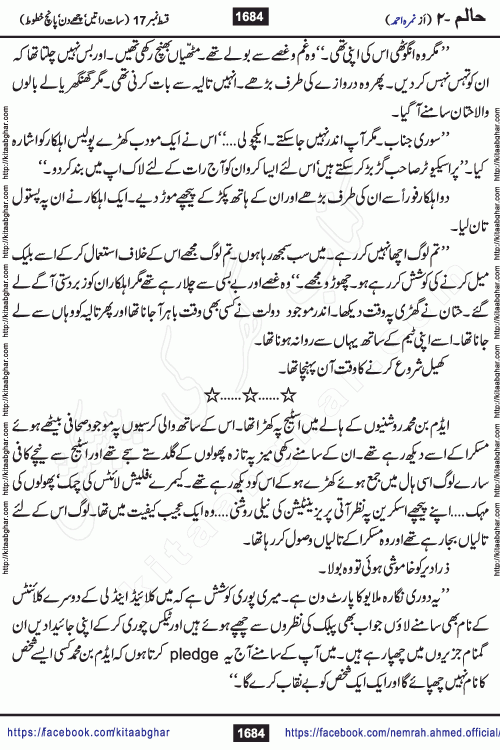 حالم -۲ (از نمرہ احمد) 1684 قسط نمبر 17 (سات راتیں، چھے دن، پانچ خطوط)
’’مگر وہ انگوٹھی اس کی اپنی تھی۔‘‘ وہ غم و غصے سے بولے تھے۔ مٹھیاں بھینچ رکھی تھیں۔ اور بس نہیں چلتا تھا کہ
ان کو تہس نہس کر دیں۔ پھر وہ دروازے کی طرف بڑھے۔ انہیں تالیہ سے بات کرنی تھی۔ مگر گھنگھریالے بالوں
والا حتان سامنے آ گیا۔
’’سوری جناب۔ مگر آپ اندر نہیں جا سکتے۔ ایکچولی....‘‘ اس نے ایک مودب کھڑے پولیس اہلکار کو اشارہ
کیا۔ ’’پراسیکیوٹر صاحب گڑبڑ کر سکتے ہیں‘ اس لئے ایسا کرو ان کو آج رات کے لئے لاک اپ میں بند کر دو۔‘‘
دو اہلکار فوراً سے ان کی طرف بڑھے اور ان کے ہاتھ پکڑ کے پیچھے موڑ دیے۔ ایک اہلکار نے ان پہ پستول
تان لیا۔
’’تم لوگ اچھا نہیں کر رہے۔ میں سب سمجھ رہا ہوں۔ تم لوگ مجھے اس کے خلاف استعمال کر کے اسے بلیک
میل کرنے کی کوشش کر رہے ہو۔ چھوڑو مجھے۔‘‘ وہ غصے اور بے بسی سے چلا رہے تھے مگر اہلکار ان کو زبردستی آگے لے
گئے۔ حتان نے گھڑی پہ وقت دیکھا۔ اندر موجود دولت نے کسی بھی وقت باہر آ جانا تھا اور پھر تالیہ کو وہاں سے لے
جانا تھا۔ اسے اپنی ٹیم کے ساتھ یہاں سے روانہ ہونا تھا۔
کھیل شروع کرنے کا وقت آن پہنچا تھا۔
☆......☆......☆
ایڈم بن محمد روشنیوں کے ہالے میں اسٹیج پہ کھڑا تھا۔ اس کے ساتھ والی کرسیوں پہ موجود صحافی بیٹھے ہوئے
مسکرا کے اسے دیکھ رہے تھے۔ ان کے سامنے رکھی میز پہ تازہ پھولوں کے گلدستے سجے تھے اور اسٹیج سے نیچے کافی
سارے لوگ اسی ہال میں جمع ہوئے کھڑے ہو کے اس کو دیکھ رہے تھے۔ کیمرے‘ فلیش لائٹس کی چمک‘ پھولوں کی
مہک.... اپنے پیچھے اسکرین پہ نظر آتی پریزینٹیشن کی نیلی روشنی.... وہ ایک عجیب کیفیت میں تھا۔ لوگ اس کے لئے
تالیاں بجا رہے تھے اور وہ مسکرا کے تالیاں وصول کر رہا تھا۔
ذرا دیر کو خاموشی ہوئی تو وہ بولا۔
’’یہ دوری نگارہ ملایو کا پارٹ ون ہے۔ میری پوری کوشش ہے کہ میں کلائیڈ اینڈ لی کے دوسرے کلائنٹس
کے نام بھی سامنے لاؤں جو اب بھی پبلک کی نظروں سے چھپے ہوئے ہیں اور ٹیکس چوری کر کے اپنی جائیدادیں ان
گمنام جزیروں میں چھپا رہے ہیں۔ میں آپ کے سامنے آج یہ pledge کرتا ہوں کہ ایڈم بن محمد کسی ایسے شخص
کا نام نہیں چھپائے گا اور ایک ایک شخص کو بے نقاب کرے گا۔‘‘
https://facebook.com/kitaabghar 1684 https://facebook.com/nemrah.ahmed.official/
http://kitaabghar.com http://kitaabghar.com http://kitaabghar.com http://kitaabghar.com